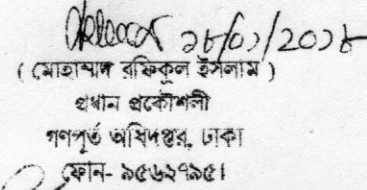 ২৮/০১/২০১৮
( মোহাম্মদ রফিকুল ইসলাম )
প্রধান প্রকৌশলী
গণপূর্ত অধিদপ্তর, ঢাকা
ফোন- ৯৫৬২৭৯৫।